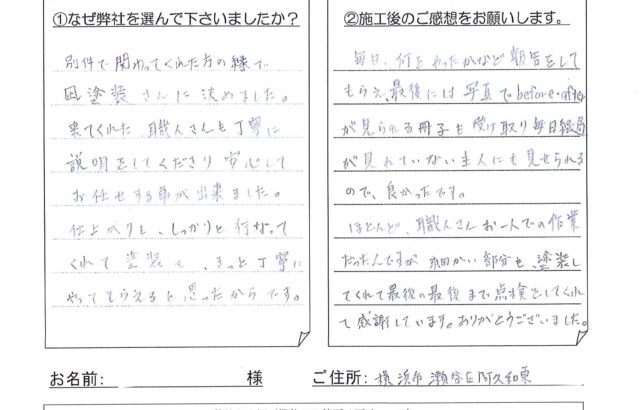 ①なぜ弊社を選んで下さいましたか？
別件で関わってくれた方の縁で
凪塗装さんに決めました。
来てくれた、職人さんも丁寧に
説明をしてくださり安心して
お任せする事が出来ました。
仕上がりも、しっかりと行なって
くれて塗装も、きっと丁寧に
やってもらえると思ったからです。
②施工後のご感想をお願いします。
毎日、何をやったかなど報告をして
もらえ、最後には写真でbefore・after
が見られる冊子も受け取り毎日経過
が見れていない主人にも見せられる
ので、良かったです。
ほとんど、職人さんお一人での作業
だったんですが細かい部分も、塗装し
てくれて最後の最後まで点検をしてくれ
て感謝しています。ありがとうございました。
お名前: 様
ご住所: 横浜市瀬谷区阿久和東